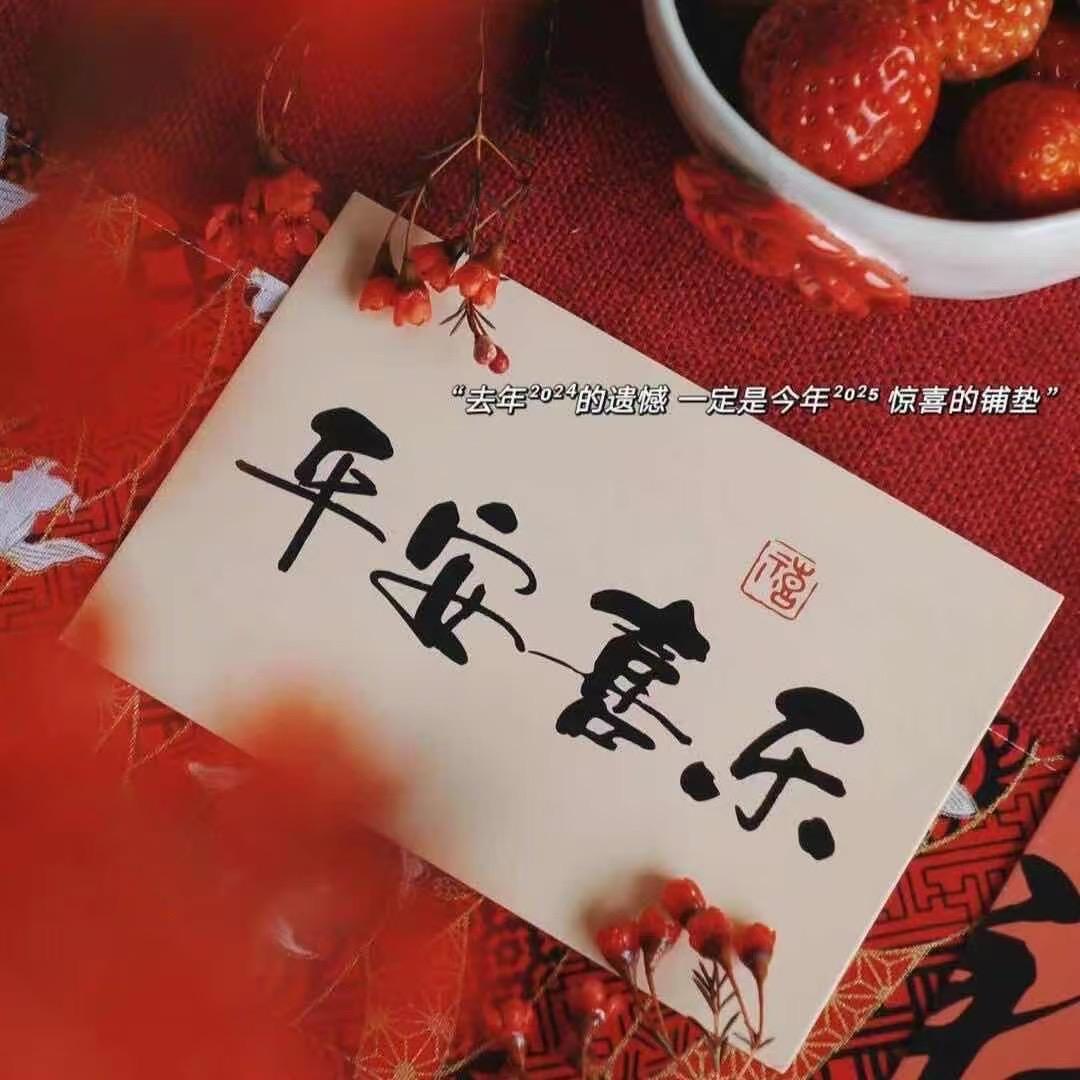 “去年²⁰²⁴的遗憾 一定是今年²⁰²⁵ 惊喜的铺垫”
平安喜乐
禧